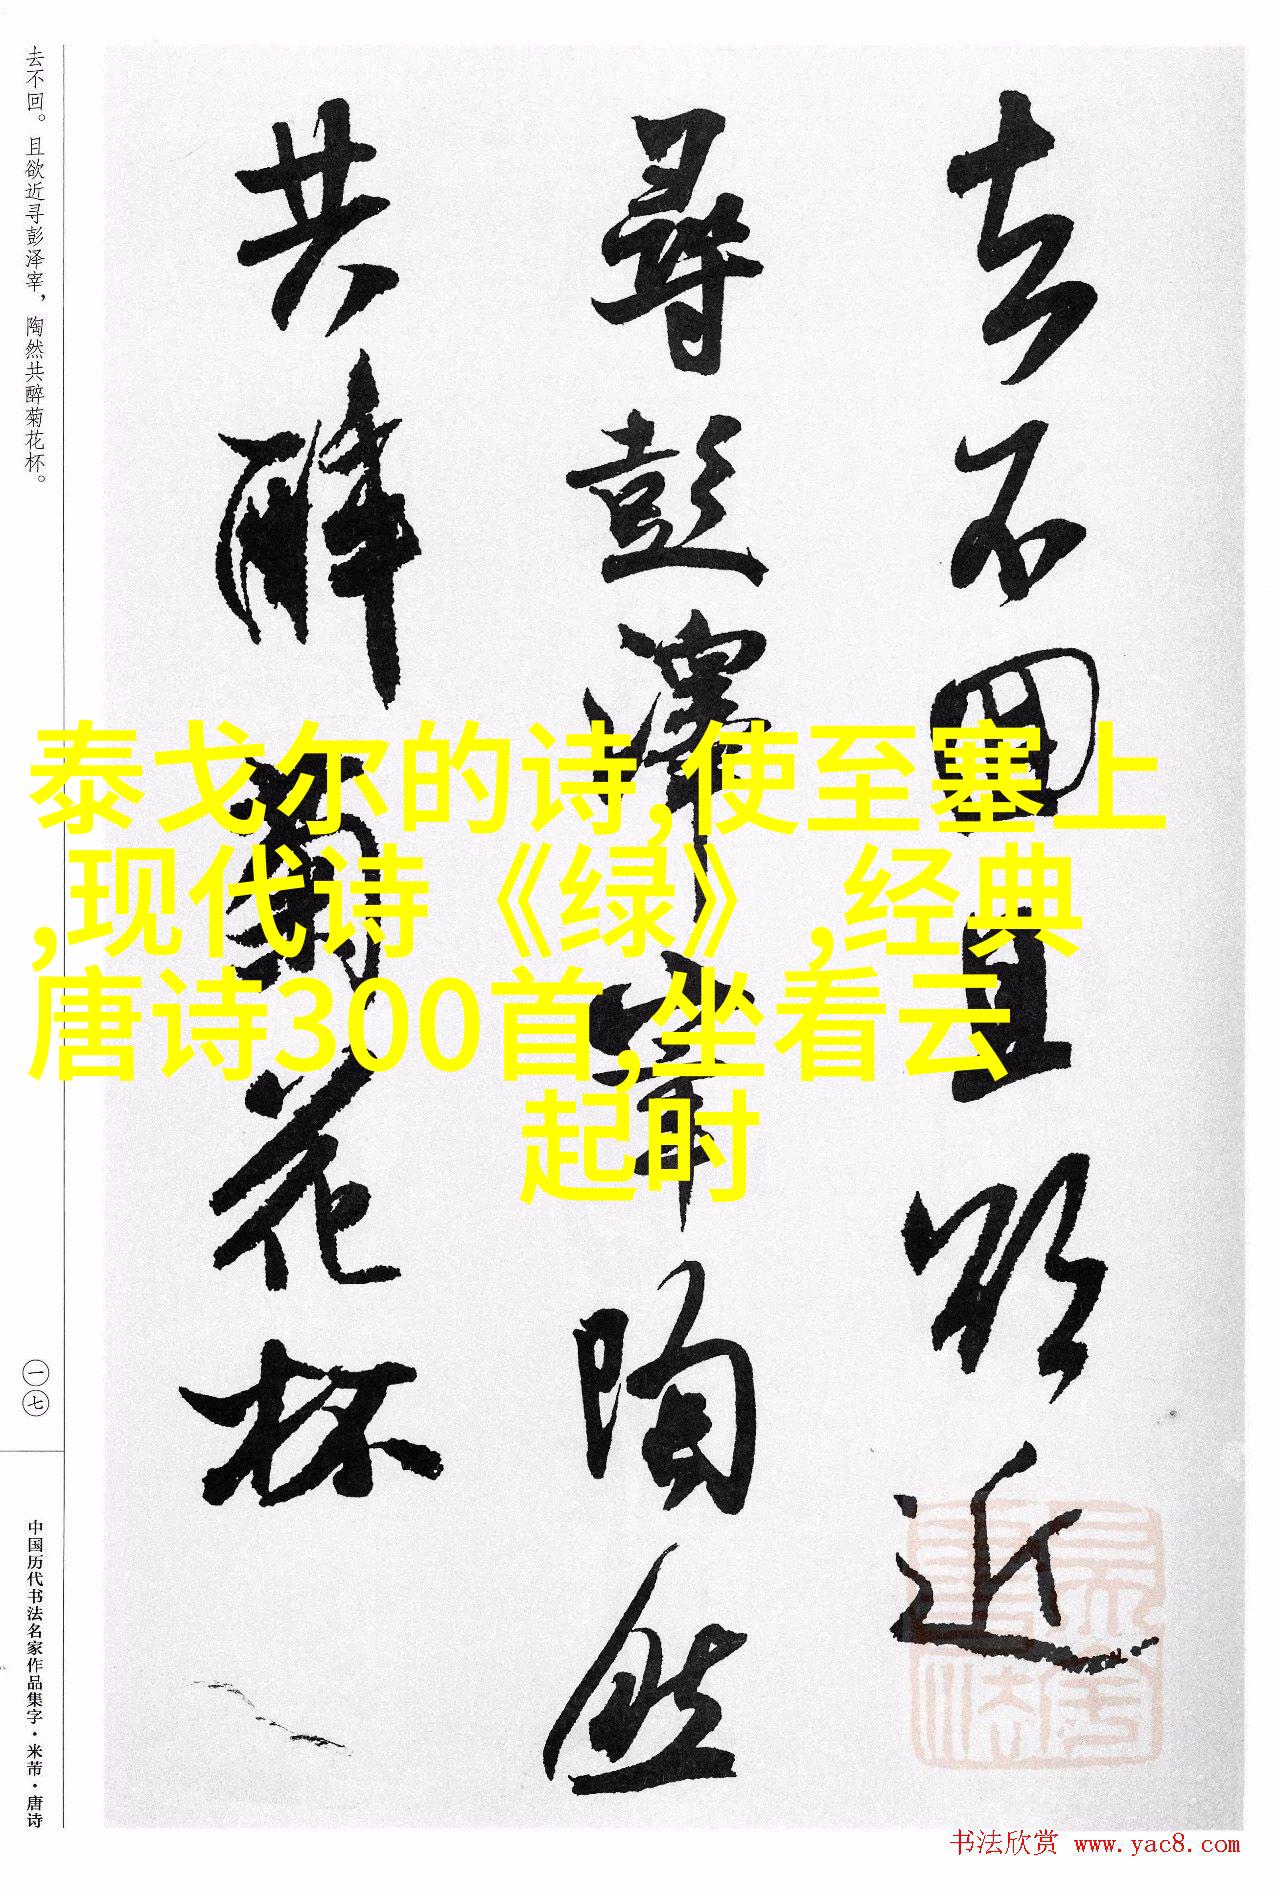 去不回且欲近
尋彭澤宰陶然
共醉菊花杯
去不回。且欲近寻彭泽宰，陶然共醉菊花杯。
一七
中国历代书法名家作品集字·米芾·唐诗
泰戈尔的诗,使至塞上
,现代诗《绿》,经典
唐诗300首,坐看云
起时
书法欣赏 www.yac8.com